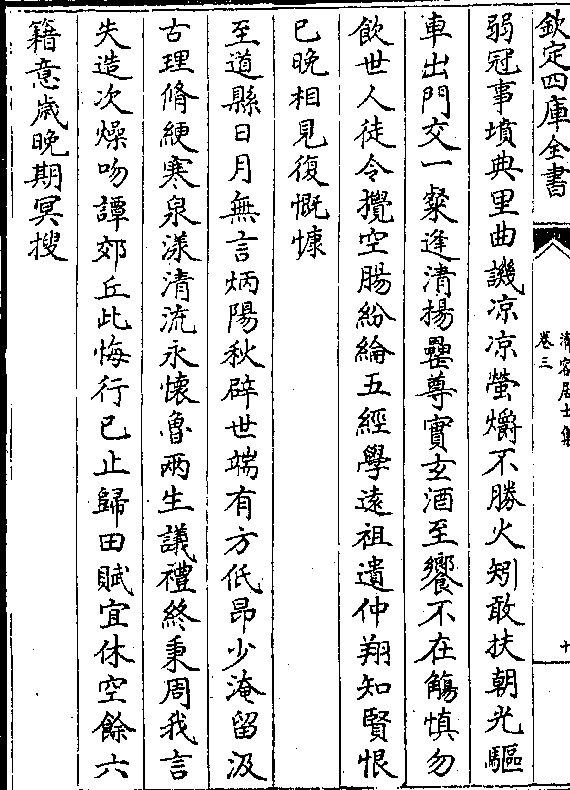 欽定四庫全書
清容居士集
卷三
十
弱冠事墳典里曲譏凉凉螢爝不勝火矧敢扶朝光驅
車出門交一粲逢清揚罍尊實玄酒至饗不在觴慎勿
飲世人徒令攪空腸紛綸五經學遠祖遺仲翔知賢恨
已晚相見復慨慷
至道縣日月無言炳陽秋辟世端有方低昂少淹留汲
古理脩綆寒泉漾清流永懷魯兩生議禮終秉周我言
失造次燥吻譚郊丘此悔行已止歸田賦宜休空餘六
籍意歲晚期冥搜